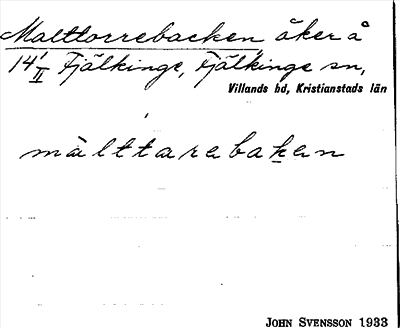 Malttorrebacken åker å
14 1/II Fjälkinge, Fjälkinge sn,
Villands hd, Kristianstads län
màlttarebaḵen
JOHN SVENSSON 1933